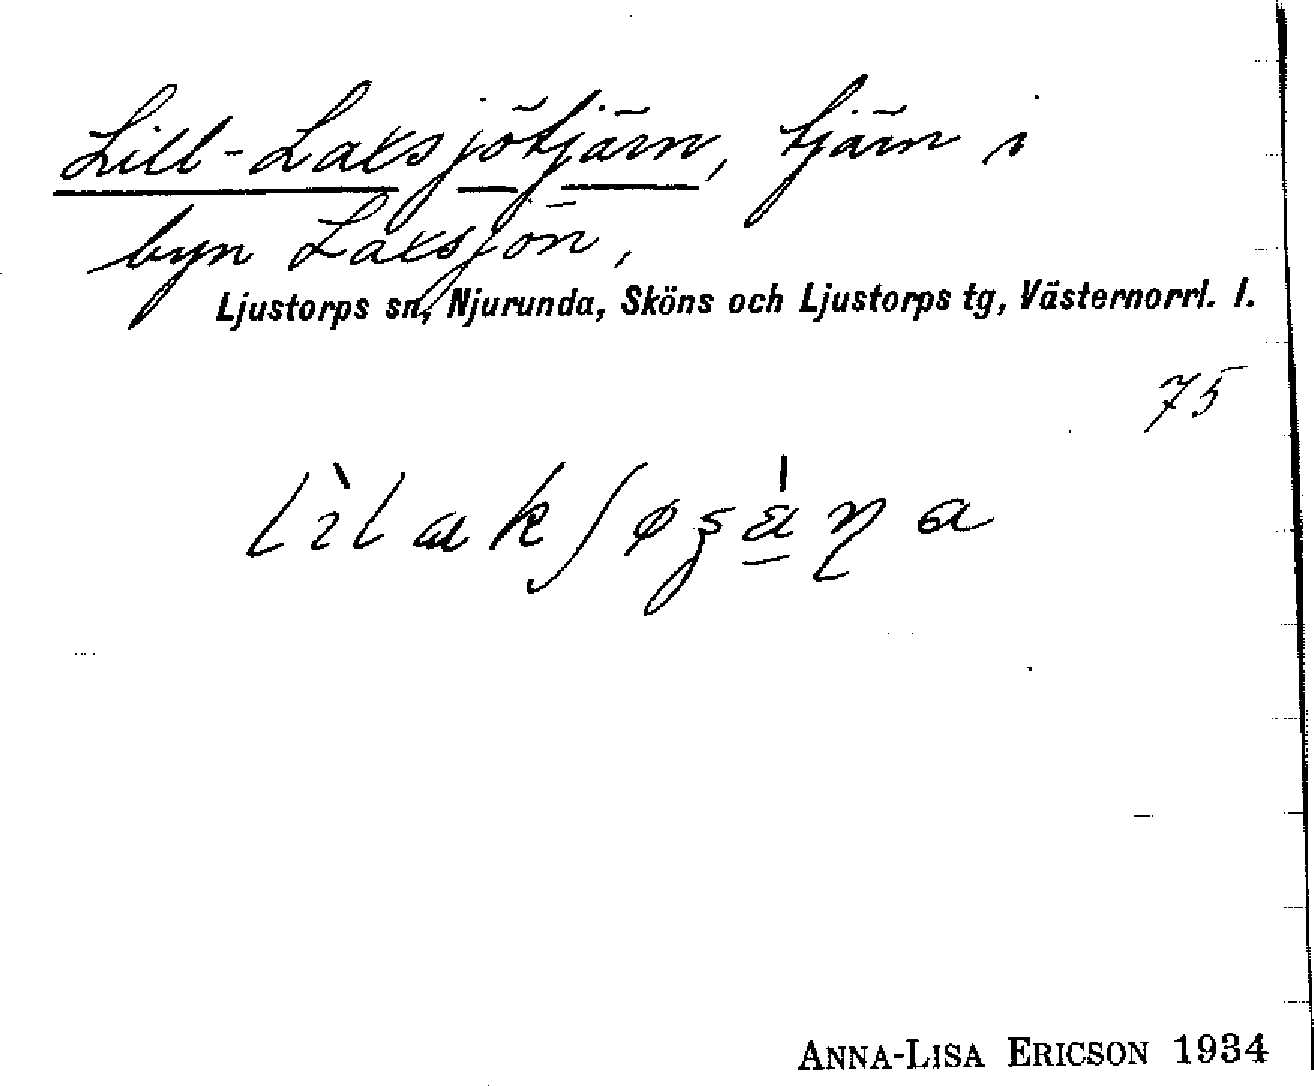 Lill-Laksjötjärn, tjärn i
byn Laksjön,
Ljustorps sn, Njurunda, Sköns och Ljustorps tg, Västernorrl. l.
75
ANNA-LISA ERICSON 1934